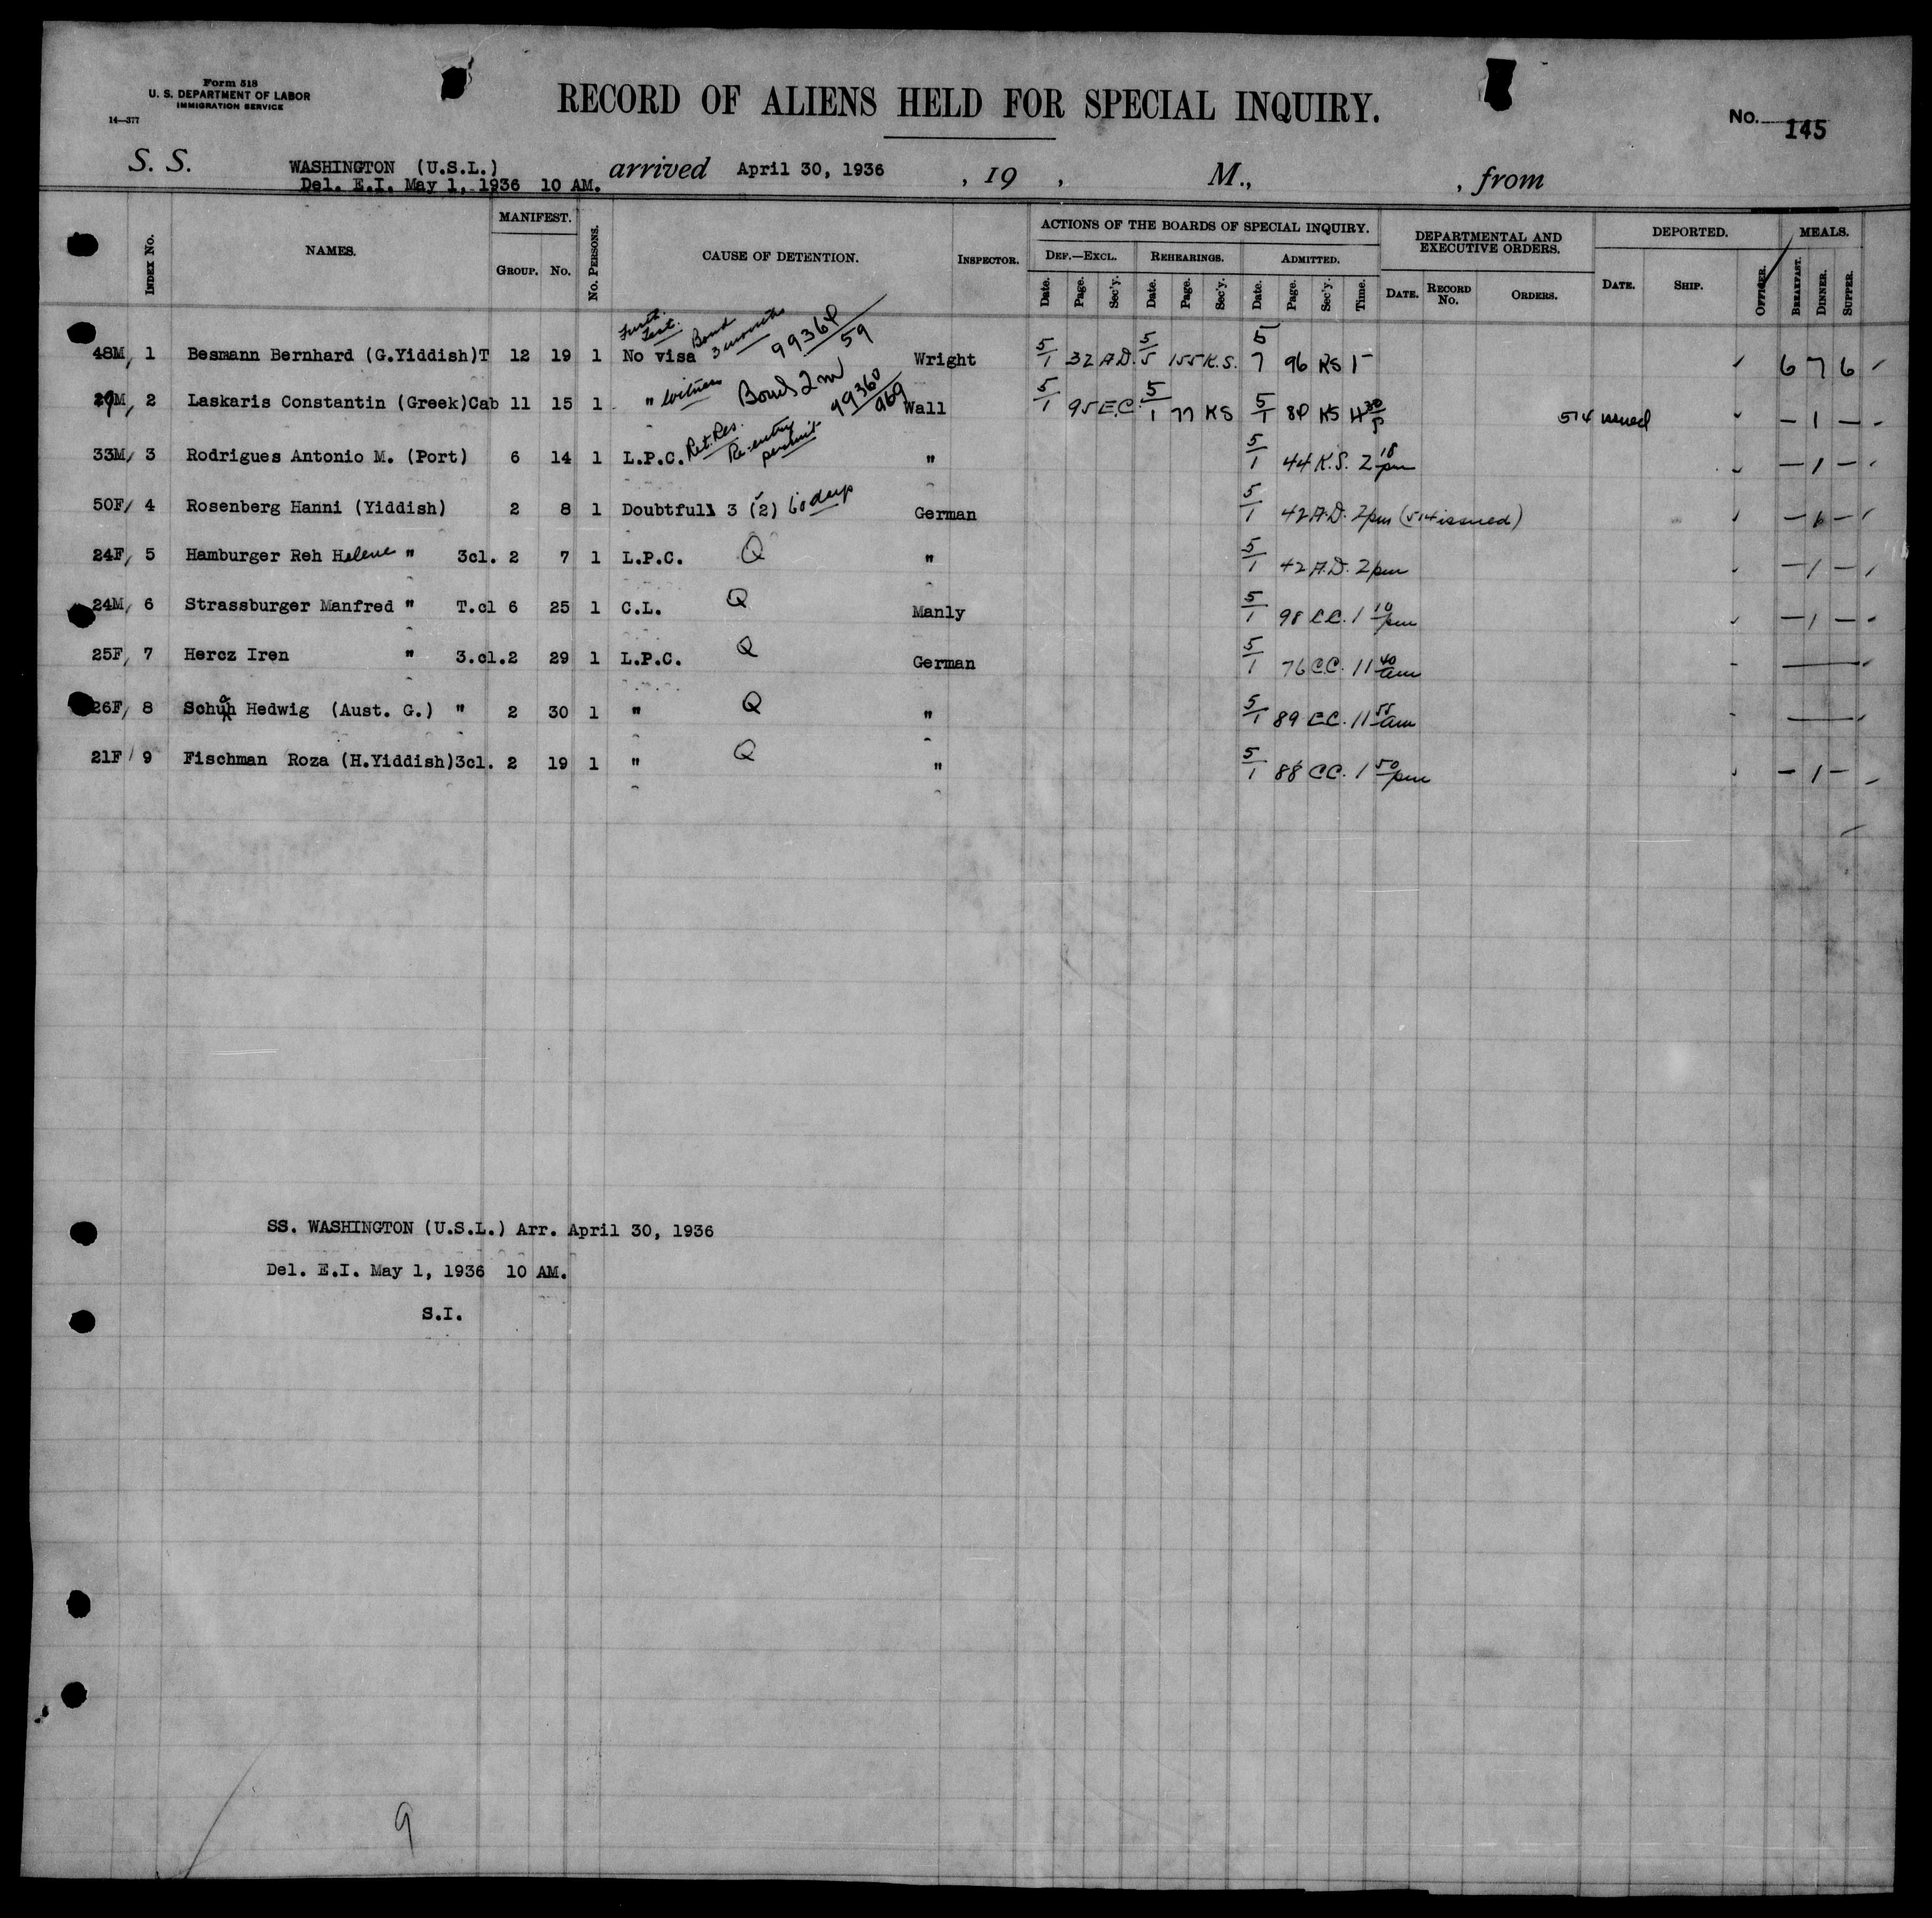 Form 518
U. S. DEPARTMENT OF LABOR
IMMIGRATION SERVICE
14—377
RECORD OF ALIENS HELD FOR SPECIAL INQUIRY.
No. 145
S. S. WASHINGTON (U.S.L.) arrived April 30, 1936 , 19 , M., , from
Del. E.I. May 1, 1936 10 AM.
INDEX No. NAMES. MANIFEST. GROUP. No. No. PERSONS. CAUSE OF DETENTION. INSPECTOR. ACTIONS OF THE BOARDS OF SPECIAL INQUIRY. DEF.—EXCL. Date. Page. Sec'y. REHEARINGS. Date. Page. Sec'y. ADMITTED. Date. Page. Sec'y. Time. DEPARTMENTAL AND EXECUTIVE ORDERS. DATE. RECORD No. ORDERS. DEPORTED. DATE. SHIP. OFFICER. MEALS. BREAKFAST. DINNER. SUPPER.
48M, 1 Besmann Bernhard (G.Yiddish)T 12 19 1 No visa Bond 3 months 9936P/59 Wright 5/1 32 A.D. 5/5 155 K.S. 5/7 96 KS 1- 6 7 6
2 Laskaris Constantin (Greek)Cab 11 15 1 " Witness Bond 2 m 99360/969 Wall 5/1 95 E.C. 5/1 77 KS 5/1 8P KS 4 30/P 514 issued — 1 —
33M, 3 Rodrigues Antonio M. (Port) 6 14 1 L.P.C. Ret. Res. Re-entry permit " 5/1 44 K.S. 2 18/pm — 1 —
50F, 4 Rosenberg Hanni (Yiddish) 2 8 1 Doubtful 3 (2) 60 days German 5/1 42 A.D. 2pm (514 issued) — 1 —
24F, 5 Hamburger Reh Helene " 3cl. 2 7 1 L.P.C. Q " 5/1 42 A.D. 2pm — 1 —
24M, 6 Strassburger Manfred " T.cl 6 25 1 C.L. Q Manly 5/1 98 C.C. 1 10/pm — 1 —
25F, 7 Hercz Iren " 3.cl. 2 29 1 L.P.C. Q German 5/1 76 C.C. 11 40/am
26F, 8 Schuh Hedwig (Aust. G.) " 2 30 1 " Q " 5/1 89 C.C. 11 55/am
21F, 9 Fischman Roza (H.Yiddish)3cl. 2 19 1 " Q " 5/1 88 C.C. 1 50/pm — 1 —
SS. WASHINGTON (U.S.L.) Arr. April 30, 1936
Del. E.I. May 1, 1936 10 AM.
S.I.
9